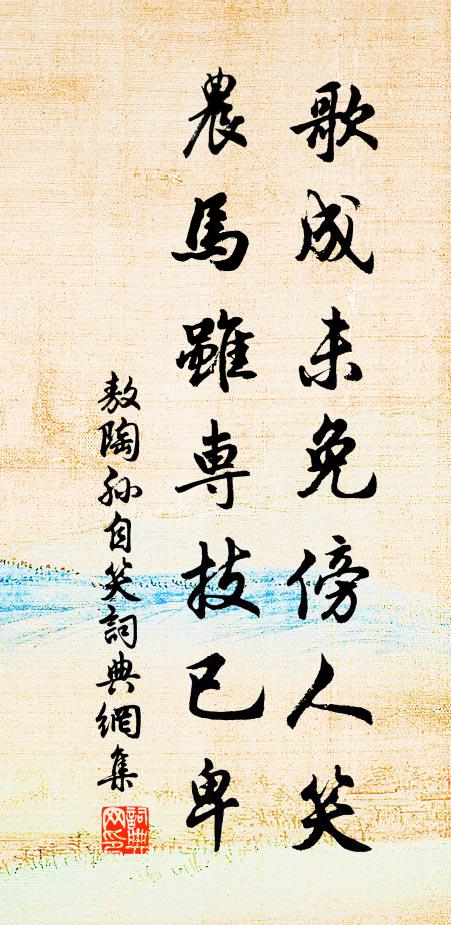 歌成未免傍人笑
農馬雖専技已卑
敖陶孫自笑詞典網集